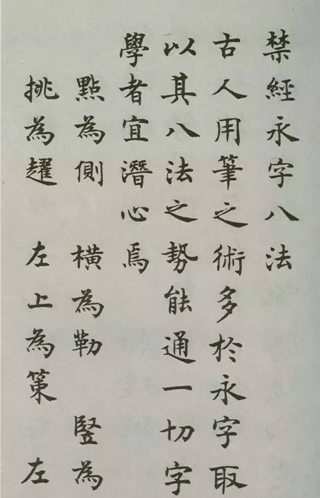 禁經永字八法
古人用筆之術多於永字取
以其八法之勢能通一切字
學者宜潛心焉
點為側 橫為勒 竪為
挑為趯 左上為策 左